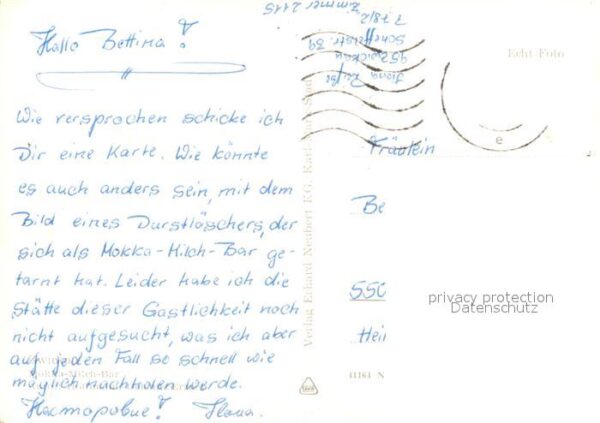 Hallo Bettina!
Wie versprochen schicke ich
Dir eine Karte. Wie könnte
es auch anders sein, mit dem
Bild eines Durstlöschers, der
sich als Mokka-Milch-Bar ge-
tarnt hat. Leider habe ich die
Stätte dieser Gastlichkeit noch
nicht aufgesucht, was ich aber
auf jeden Fall so schnell wie
möglich nachholen werde.
Насторовие! Ilona.
Mokka-Milch-Bar
Verlag Erhard Neubert KG, Karl-Marx-Stadt
Zimmer 2115
778/2
39
95 Zwickau
Ilona
Echt Foto
e
Fräulein
Be
SSC
Hei
privacy protection
Datenschutz
11164 N